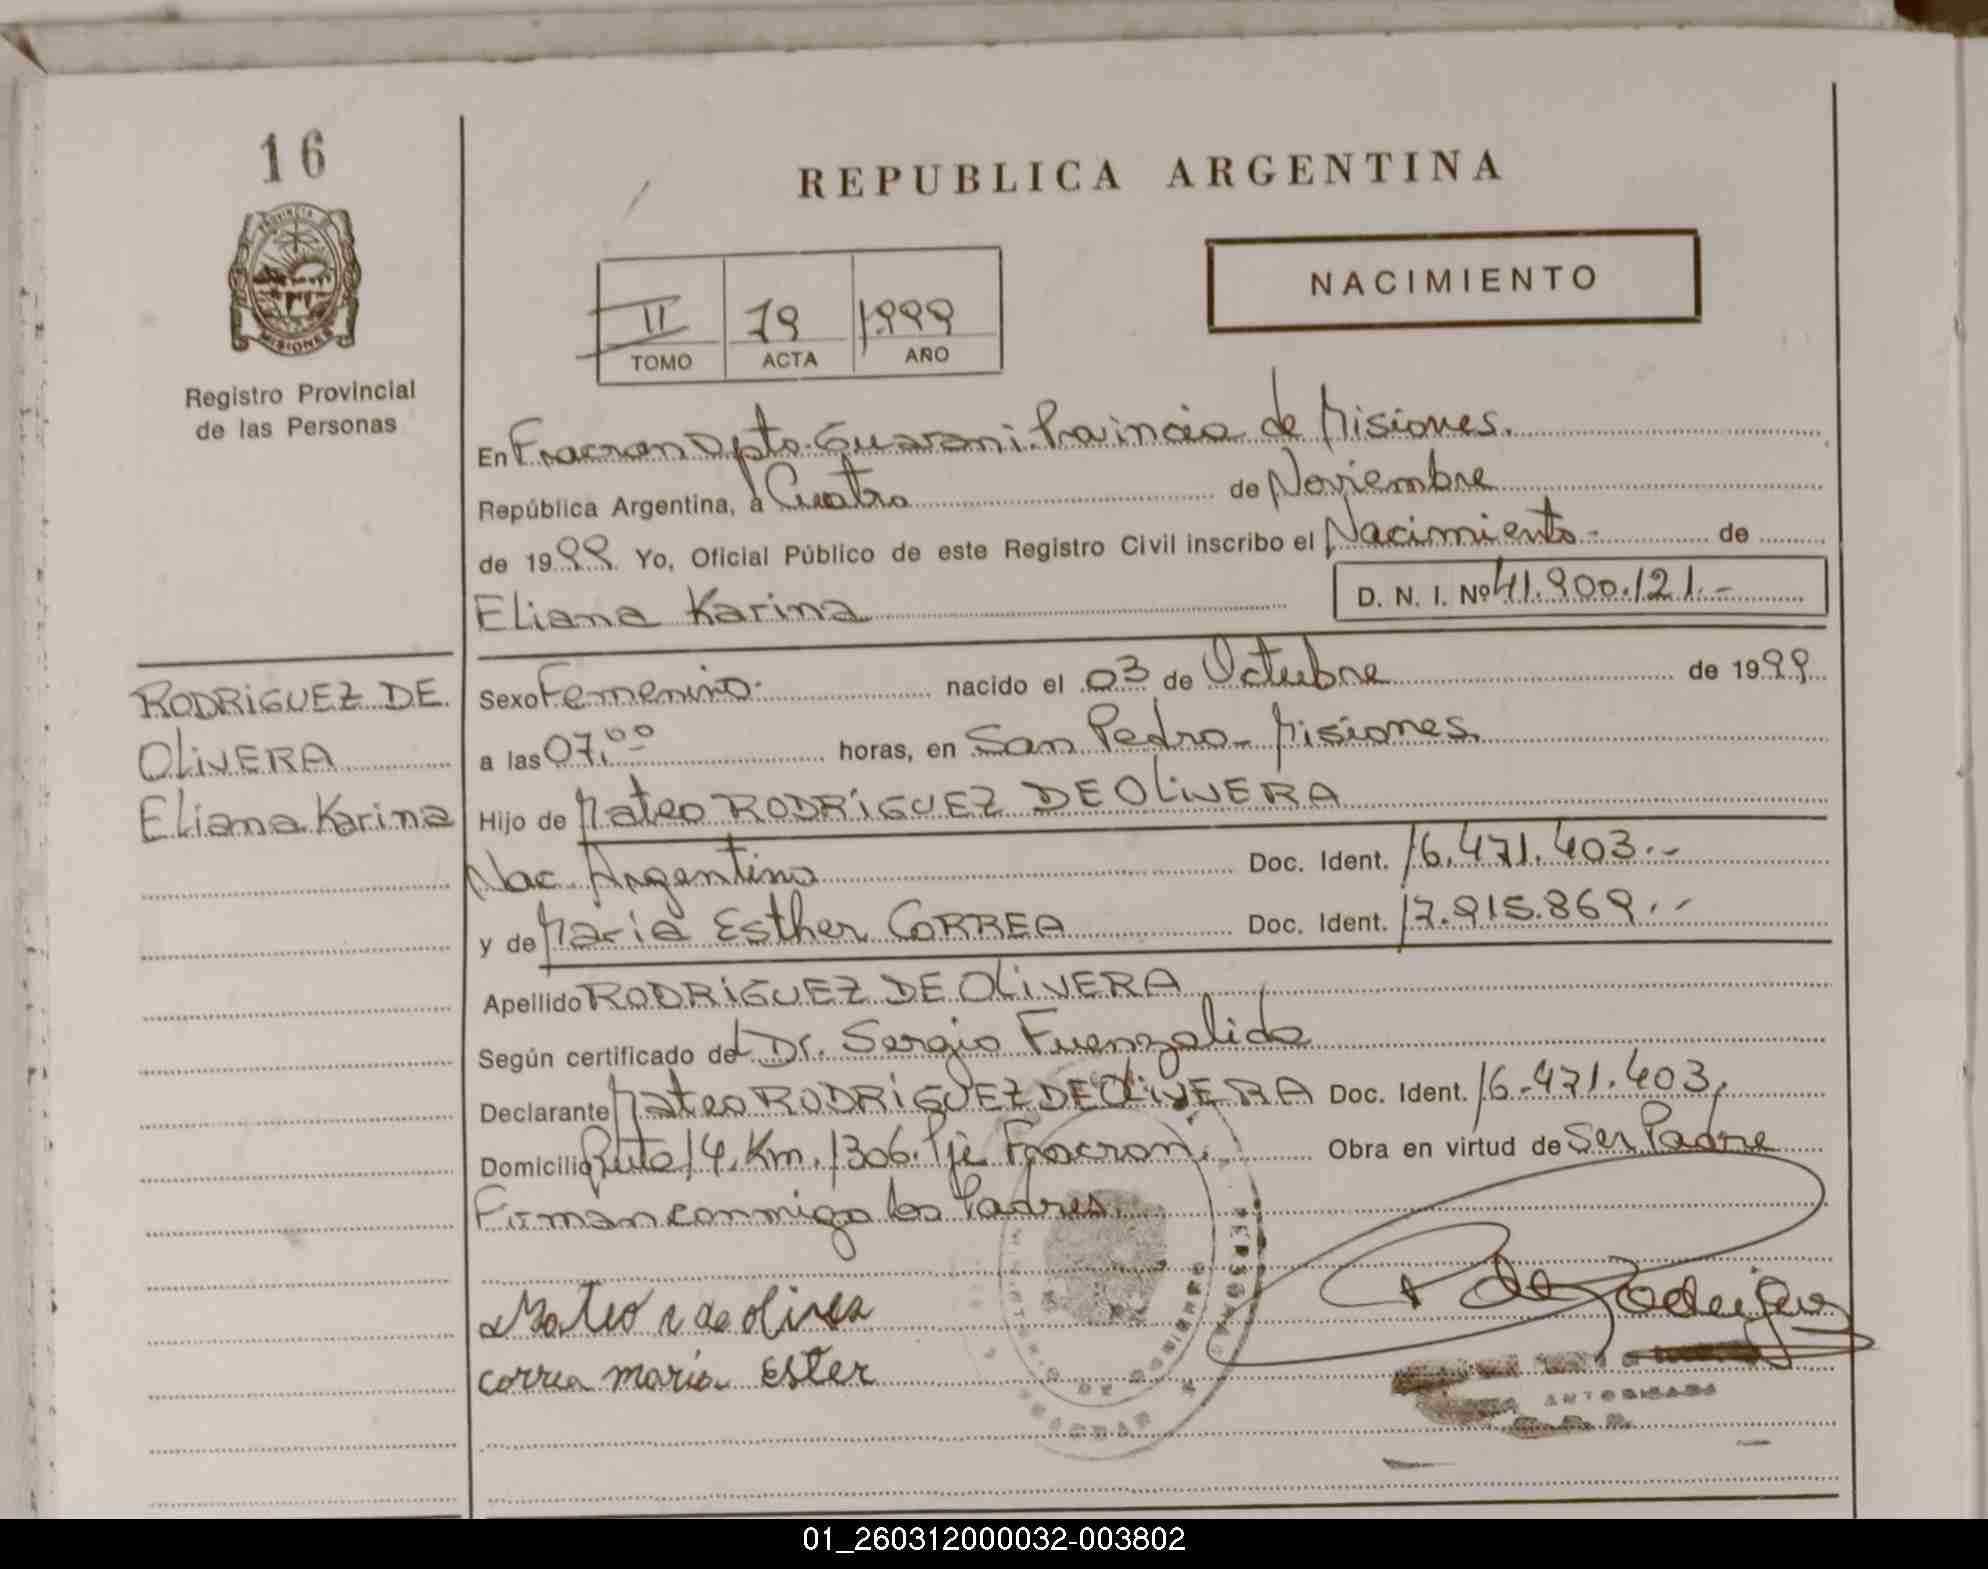 16
REPUBLICA ARGENTINA
PROVINCIA
MISIONES
NACIMIENTO
II 79 1999
TOMO ACTA AÑO
Registro Provincial
de las Personas
En Fracran Dpto. Guarani. Provincia de Misiones.
República Argentina, a Cuatro de Noviembre
de 1999. Yo, Oficial Público de este Registro Civil inscribo el Nacimiento.- de
Eliana Karina D. N. I. Nº 41.900.121.-
RODRiGUEZ DE
OLiVERA
Eliana Karina
Sexo Femenino. nacido el 03 de Octubre de 1999.
a las 07,00 horas, en San Pedro - Misiones.
Hijo de Mateo RODRiGUEZ DE OLiVERA
Nac. Argentino Doc. Ident. 16.471.403.-
y de Maria Esther CORREA Doc. Ident. 17.915.869.-
Apellido RODRiGUEZ DE OLiVERA
Según certificado del Dr. Sergio Fuenzalida
Declarante Mateo RODRiGUEZ DE OLiVERA Doc. Ident. 16.471.403,
Domicilio Ruta 14, Km. 1306. Pje Fracran. Obra en virtud de Ser Padre
Firman conmigo los Padres.
Mateo R de olivera
correa maria Ester
AUTORIZADA
01_260312000032-003802